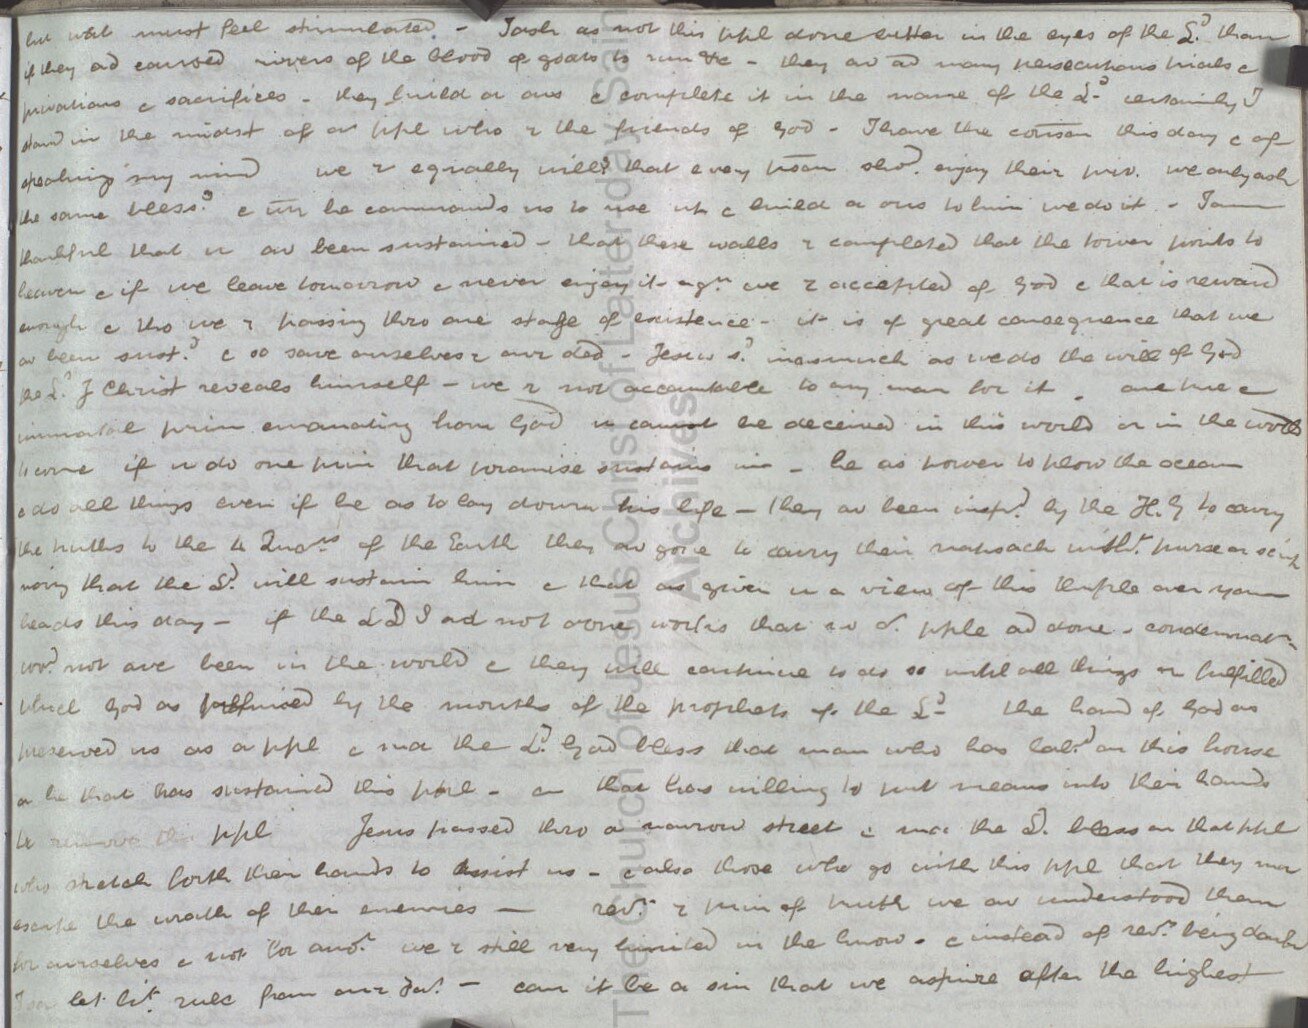 but wch must feel stimulated. - I ask as not this ppl done better in the eyes of the Ld. than
if they ad caused rivers of the blood of goats to run &c - they av ad many persecutions trials &
privations & sacrifices - they build a ous & complete it in the name of the Ld - certainly I
stand in the midst of a ppl who r the friends of God - I have the this day & of
speaking my mind we r equally willg that every person shod. enjoy their priv. we only ask
the same blessg & wn he commands us to use it & build a ous to him we do it - I am
thankful that we av been sustained - that these walls r completed that the tower points to
heaven & if we leave tomorrow & never enjoy it agn we r accepted of God & that is reward
enough & tho we r passing thro one stage of existence - it is of great consequence that we
av been sustd & so save ourselves & our ded - Jesus sd inasmuch as we do the will of God
the Ld J Christ reveals himself - we r not accountable to any man for it - one true &
immortal prin emanating from God we cannot be deceived in this world or in the world
to come if we do one prin that promise sustains him - he as power to plow the ocean
& do all things even if he as to lay down his life - they av been inspd by the H.G to carry
the truths to the 4 Quars of the Earth they av gone to carry their napsack witht. purse or scrip
noing that the Ld will sustain him & that as given us a view of this temple over your
heads this day - if the L D S ad not done works that no or. pple ad done - condemnatn
wod not ave been in the world & they will continue to do so until all things r fulfilled
which God as by the mouths of the prophets of the Ld - the hand of God as
preserved us as a ppl & may the Ld. God bless that man who has labd on this house
or he that has sustained this ppl - or that has willing to put means into their hands
to remove this ppl Jesus passed thro a narrow street & may the Ld. bless on that ppl
who stretch forth their hands to assist us - & also those who go with this ppl that they may
escape the wrath of their enemies — revn r prin of truth we av understood them
for ourselves & not for anor we r still very limited in the know. & instead of revn being doubt
I say let lit. rule from our Far. - can it be a sin that we aspire after the highest
The Church of Jesus Christ of Latter-day Saints
Archives